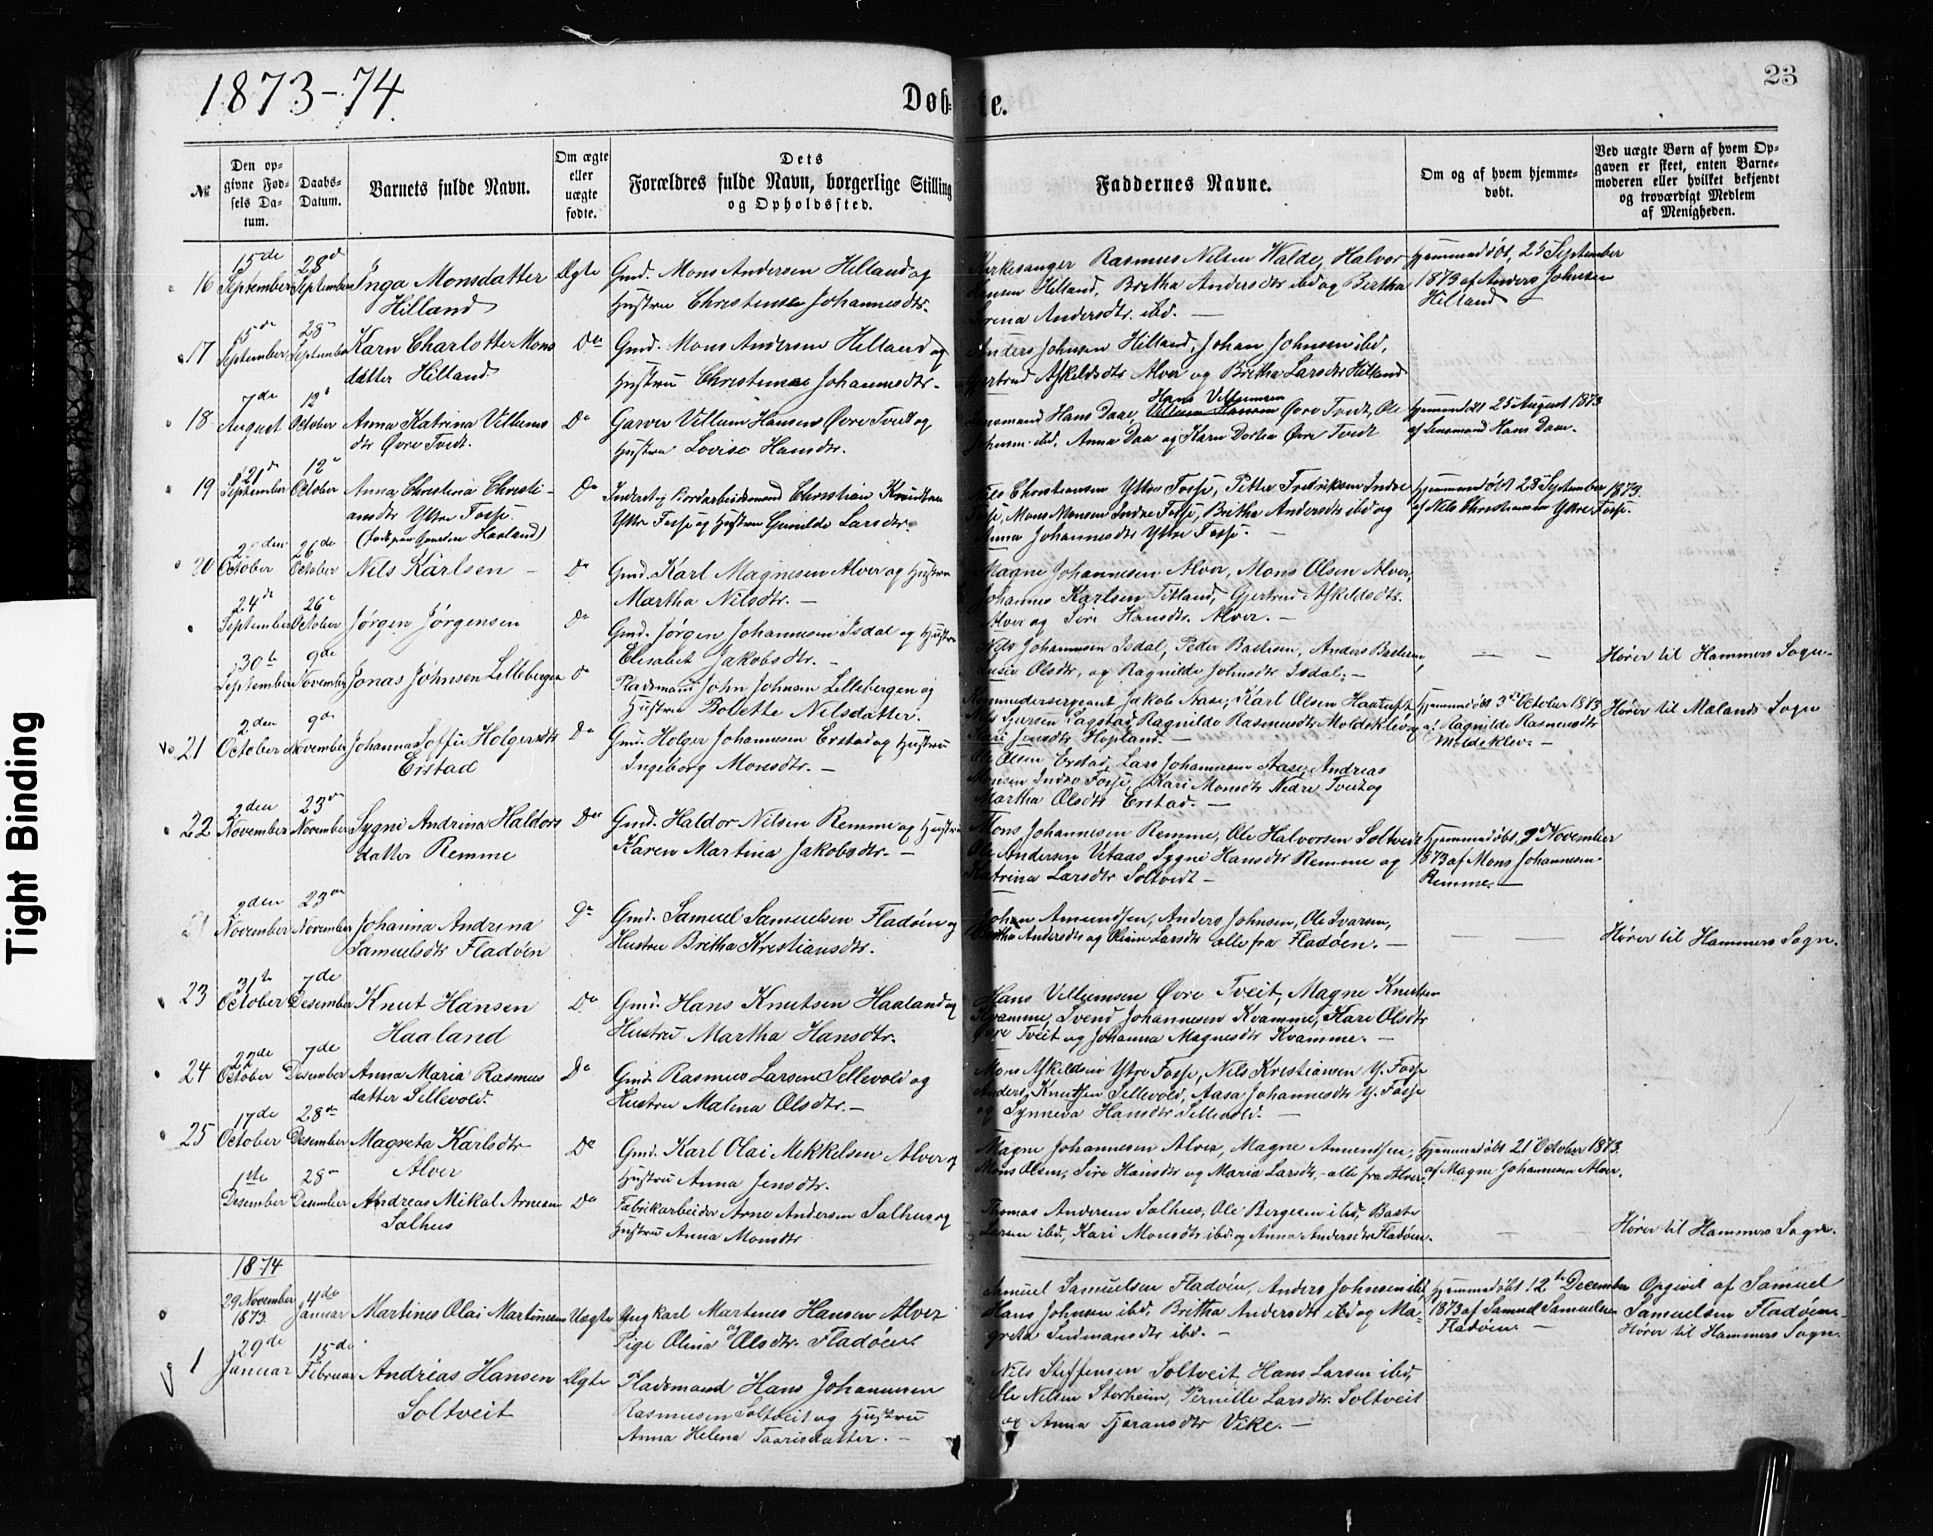 1873-74.
Døbte.
23
№
Den opgivne Fødsels Datum.
Daabs-Datum.
Barnets fulde Navn.
Om ægte eller uægte fødte.
Dets Forældres fulde Navn, borgerlige Stilling og Opholdssted.
Faddernes Navne.
Om og af hvem hjemmedøbt.
Ved uægte Børn af hvem Opgaven er skeet, enten Barnemoderen eller hvilket bekjendt og troværdigt Medlem af Menigheden.
16 15de September 28de September Inga Monsdatter Hilland Ægte
Gmd. Mons Andersen Hilland og
Hustru Christense Johannesdtr.
Kirkesanger Rasmus Nilsen Walde, Halvor
Hansen Hilland, Britha Andersdtr ibd og Bertha
Serena Andersdtr. ibd. —
Hjemmedøbt, 25 September
1873 af Anders Johnsen
Hilland
17 15de September 28de September Karn Charlotte Monsdatter Hilland Do
Gmd. Mons Andersen Hilland og
Hustru Christense Johannesdtr.
Anders Johnsen Hilland, Johan Johnsen ibd,
Gjertrud Askildsdtr Alver og Britha Larsdtr Hilland
18 7de August 12te October Anna Katrina Villumsdtr Øvre Tvedt. Do
Garver Villum Hansen Øvre Tvedt og
Hustru Lovise Hansdtr.
Lensmand Hans Daae, Hans Villumsen Øvre Tvedt, Ole
Johnsen ibd, Anna Daa og Karn Dortea Øvre Tvedt
Hjemmedøbt 25 August 1873
af Lensmand Hans Daae.
19 21de September 12te October Anna Christina Christiansdtr Yttre Fosse. Do
Inderst og Bordarbeidsmand Christian Knudsen
Yttre Fosse og Hustru Gunilde Larsdtr.
Nils Christiansen Yttre Fosse, Petter Fredriksen Indre
Fosse, Mons Monsen Indre Fosse, Britha Andersdtr ibd og
Anna Johannesdtr Yttre Fosse. —
Hjemmedøbt 28 September 1873.
af Nils Christiansen Yttre Fosse.
20 October 26de October Nils Karlsen — Do
Gmd. Karl Magnesen Alver og Hustru
Martha Nilsdtr. —
Magne Johannesen Alver, Mons Olsen Alver,
Johannes Karlsen Titland, Gjertrud Askildsdtr.
Alver og Siri Hansdtr. Alver. —
24de September 26de October Jørgen Jørgensen Do
Gmd. Jørgen Johannesen Isdal og Hustru
Elisabet Jakobsdtr. —
Nils Johannesen Isdal, Peder Bastesen, Anders Bastesen,
Olsdtr, og Ragnilde Johnsdtr Isdal. —
— —
Hører til Hammers Sogn.
30te September 9de November Jonas Johnsen Lillebergen Do
Pladsmand John Johnsen Lillebergen og
Hustru Bolette Nilsdatter.
Kommandersergeant Jakob Aase, Karl Olsen Haatuft
Ragnilde Rasmusdtr Moldeklev og
Kari Jonsdtr Hopland. —
Hjemmedøbt 3de October 1873
af Ragnilde Rasmusdtr
Moldeklev. —
Hører til Mælands Sogn
21 2den October 9de November Johanna Soffie Holgersdtr Erstad Do
Gmd. Holger Johannesen Erstad og Hustru
Ingeborg Monsdtr. —
Ole Olsen Erstad, Lars Johannesen Aase, Andreas
Monsen Indre Fosse, Kari Monsdtr Nedre Tveit og
Martha Olsdtr Erstad. —
22 2den November 23de November Sygni Andrina Haldorsdatter Remme Do
Gmd. Haldor Nilsen Remme og Hustru
Karen Martina Jakobsdtr. —
Mons Johannesen Remme, Ole Halvorsen Soltvedt
Ole Andersen Vetaas, Sygni Hansdtr Remme og
Katrina Larsdtr Soltvedt —
Hjemmedøbt, 9de November
1873 af Mons Johannesen
Remme. —
November 23de November Johanna Andrina Samuelsdtr Fladøen Do
Gmd. Samuel Samuelsen Fladøen og
Hustru Britha Kristiansdtr.
Johan Amundsen, Anders Johnsen, Ole Ivarsen,
Bertha Andersdtr og Oliane Larsdtr alle fra Fladøen. —
— —
Hører til Hammers Sogn.
23 31te October 7de Desember Knut Hansen Haaland Do
Gmd. Hans Knutsen Haaland og
Hustru Martha Hansdtr.
Hans Villumsen Øvre Tveit, Magne Knutsen
Kvamme, Svend Johannesen Kvamme, Kari Olsdtr
Øvre Tveit og Johanna Magnesdtr Kvamme. —
24 22de October 7de Desember Anna Maria Rasmusdatter Sellevold. Do
Gmd. Rasmus Larsen Sellevold og
Hustru Malena Olsdtr. —
Mons Askildsen Yttre Fosse, Nils Kristiansen Y. Fosse
Anders Knutsen Sellevold, Aasa Johannesdtr Y. Fosse
og Synneva Hansdtr Sellevold. —
25 17de October 28de Desember Magreta Karlsdtr Alver Do
Gmd. Karl Olai Mikkelsen Alver og
Hustru Anna Jensdtr.
Magne Johannesen Alver, Magne Amundsen,
Mons Olsen, Siri Hansdtr og Maria Larsdtr, alle fra Alver.
Hjemmedøbt 21 October 1873.
af Magne Johannesen Alver.
1ste Desember 28de Desember Andreas Mikal Arnesen Salhus Do
Fabrikarbeider Arne Andersen Salhus og
Hustru Anna Monsdtr
Thomas Andersen Salhus, Ole Bergesen ibd, Baste
Larsen ibd, Kari Monsdtr ibd og Anna Andersdtr Fladøen.
— —
Hører til Hammers Sogn.
1874
29 November 1873 4de Januar Martines Olai Martinesen Uægte
Ungkarl Martines Hansen Alver
og
Pige Olina Olsdtr. Fladøen
Samuel Samuelsen Fladøen, Anders Johnsen ibd,
Hans Johnsen ibd. Britha Andersdtr ibd og Magreta
ibd. —
Hjemmedøbt 12te December
1873 af Samuel Samuelsen
Fladøen. —
Opgivet af Samuel
Samuelsen Fladøen.
Hører til Hammers Sogn.
1 29de Januar 15de Februar Andreas Hansen Soltveit Ægte
Pladsmand Hans Johannesen
Rasmussen Soltveit og Hustru
Anna Helena Taarisdatter. —
Nils Steffensen Soltveit, Hans Larsen ibd,
Ole Nilsen Storheim, Pernille Larsdtr. Soltveit
og Anna Tjeransdtr Vike. —
Tight Binding